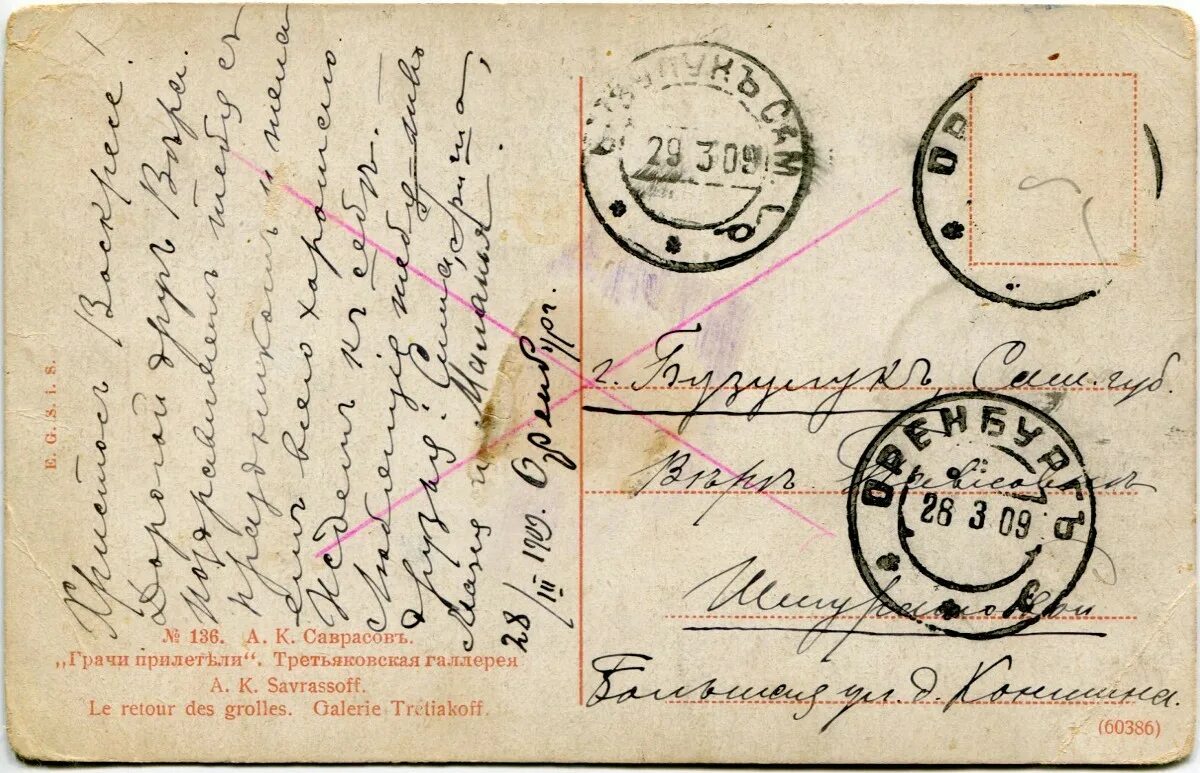 Христосъ Воскресе!
Дорогой другъ Вѣра.
Поздравляемъ тебя съ
праздникомъ и жела
емъ всего хорошаго
Ждемъ къ себѣ.
Любящіе тебя
друзья: Сима, Гриша,
Маня и Маланья.
28/III 1909. Оренбург.
E. G. S. i. S.
№ 136. А. К. Саврасовъ.
„Грачи прилетѣли“. Третьяковская галлерея
A. K. Savrassoff.
Le retour des grolles. Galerie Tretiakoff.
БУЗУЛУКЪ САМ. Г.
29 3 09
ОР
г. Бузулукъ, Сам. губ.
Вѣрѣ
ОРЕНБУРГЪ
28 3 09
Большая ул. д. Коншина.
(60386)